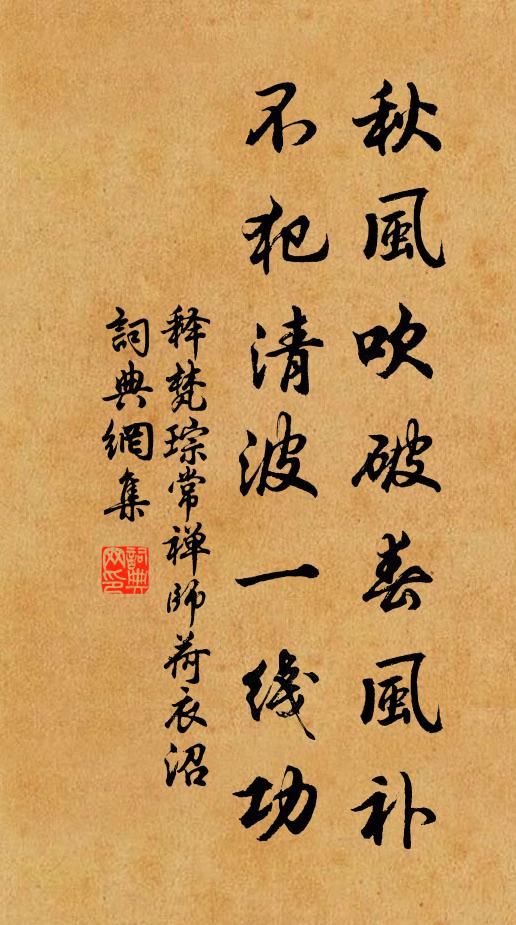 秋風吹破春風补
不犯清波一线功
释梵琮常禅師荷衣沼
詞典網集
詞典网印